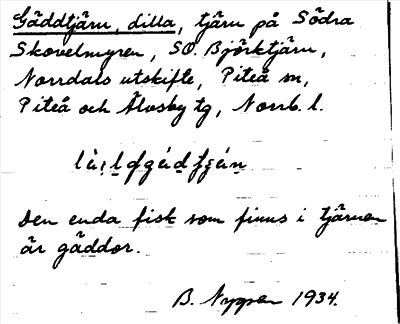 Gäddtjärn, dilla, tjärn på Södra
Skovelmyren, SO. Björktjärn,
Norrdals utskifte, Piteå sn,
Piteå och Älvsby tg, Norrb. l.
Den enda fisk som finns i tjärnen
är gäddor.
B. Nyppen 1934.